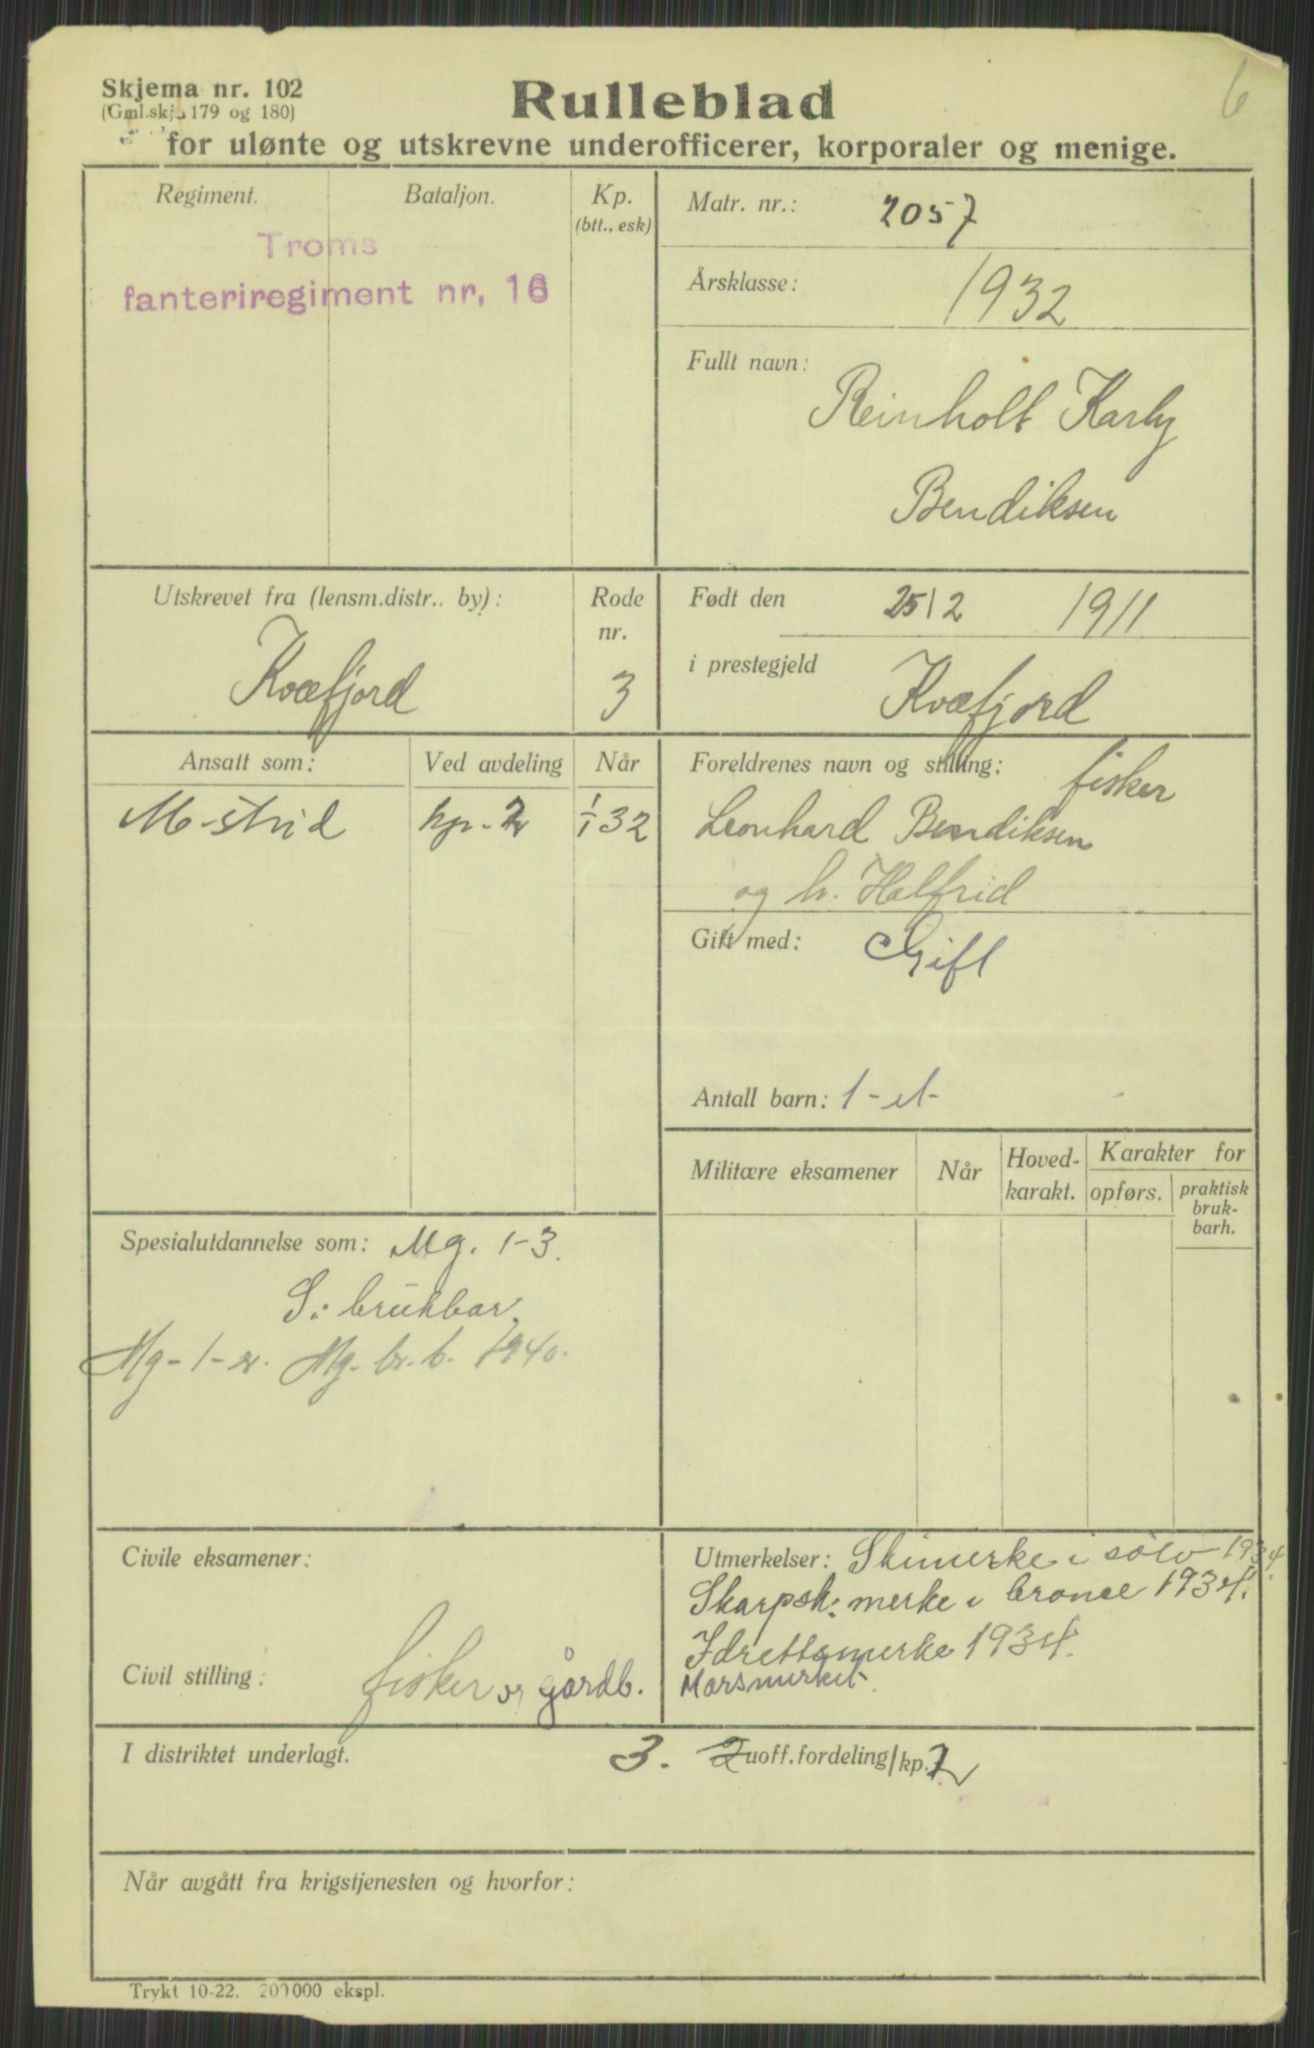 6
Skjema nr. 102
(Gml.skj. 179 og 180)
Rulleblad
for ulønte og utskrevne underofficerer, korporaler og menige.
Regiment. Bataljon. Kp. (btt., esk)
Troms
fanteriregiment nr. 16
Matr. nr.: 2057
Årsklasse: 1932
Fullt navn: Reinholt Karly
Bendiksen
Utskrevet fra (lensm.distr.. by): Kvæfjord
Rode nr. 3
Født den 25/2 1911
i prestegjeld Kvæfjord
Ansatt som: Ved avdeling Når
M-strid kp. 2 1/1 32
Foreldrenes navn og stilling: fisker
Leonhard Bendiksen
og h. Halfrid
Gift med: Gift
Antall barn: 1-et-
Militære eksamener Når Hoved-karakt. Karakter for
opførs. praktisk bruk-barh.
Spesialutdannelse som: Mg. 1-3.
S: brukbar.
Mg-1-er. Mg. br. b. 1940.
Civile eksamener:
Civil stilling: fisker og gårdb.
Utmerkelser: Skimerke i sølv 1934.
Skarpsk. merke i bronce 1934.
Idrettsmerke 1934.
Marsmerket.
I distriktet underlagt. 3. 2 uoff.fordeling/kp. 2
Når avgått fra krigstjenesten og hvorfor:
Trykt 10-22. 200 000 ekspl.